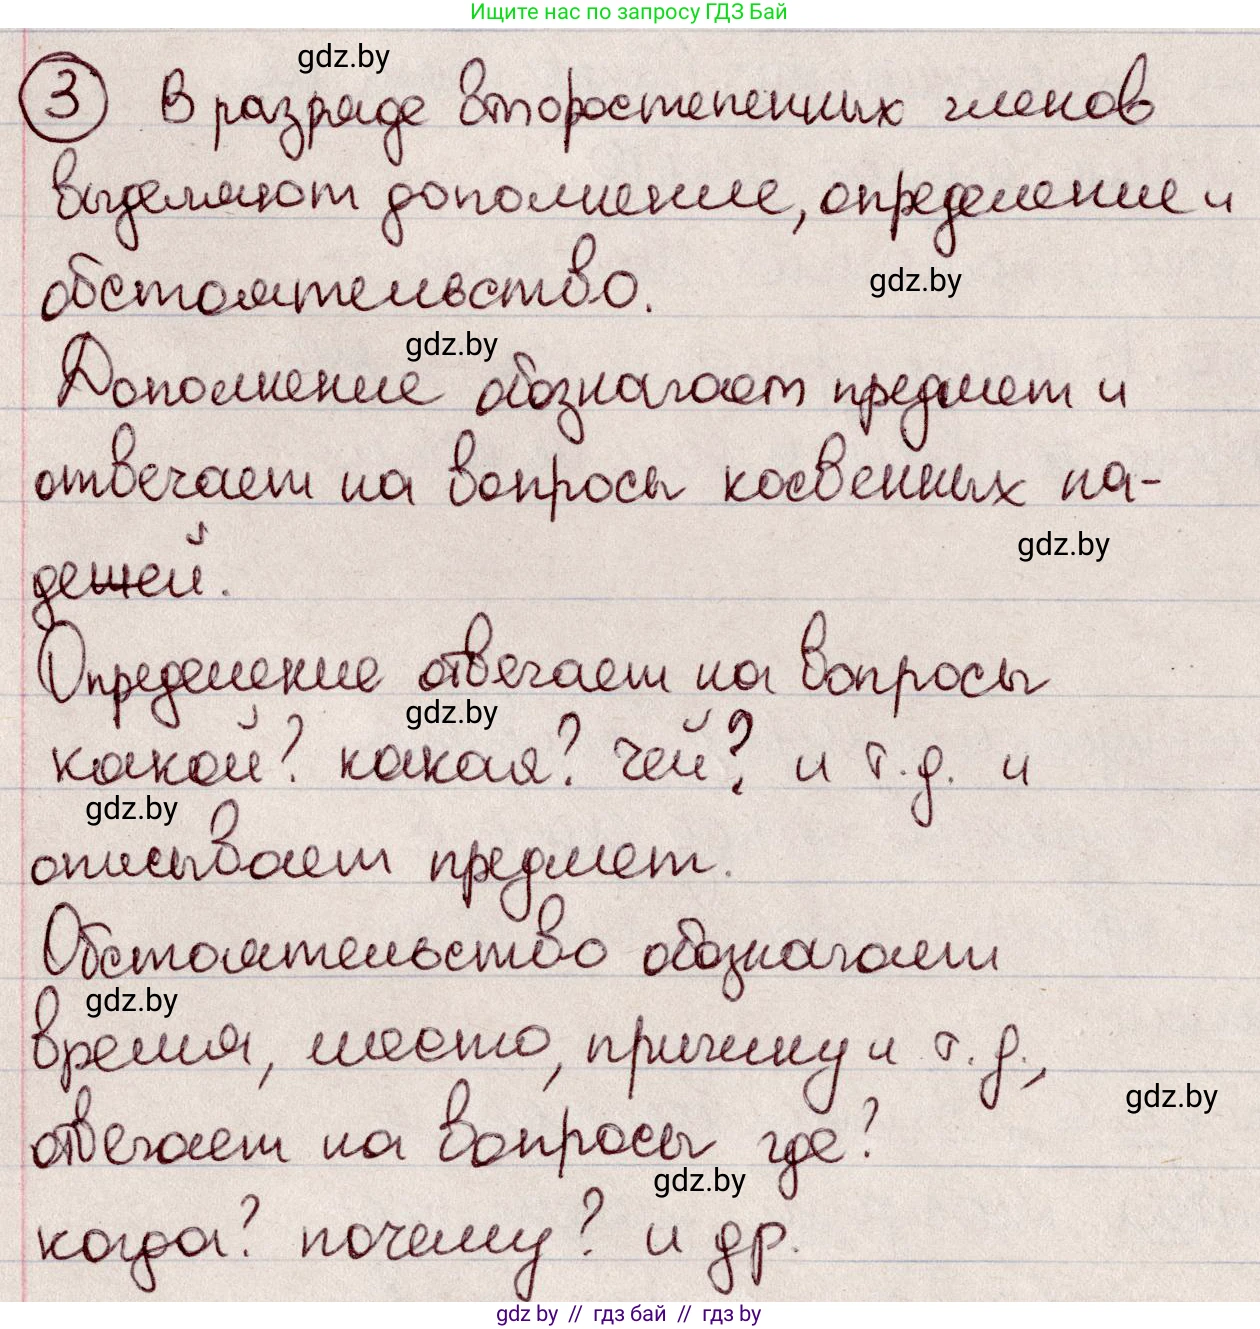 Ищите нас по запросу ГДЗ Бай
gdz.by
3 В разряде второстепенных членов
выделяют дополнение, определение и
обстоятельство.
gdz.by
gdz.by
Дополнение обозначает предмет и
отвечает на вопросы косвенных па-
дежей.
gdz.by
Определение отвечает на вопросы
gdz.by
какой? какая? чей? и т.д. и
gdz.by
описывает предмет.
Обстоятельство обозначает
gdz.by
время, место, причину и т.д.,
gdz.by
отвечает на вопросы где?
gdz.by
когда? почему? и др.
gdz.by // гдз бай // гдз by